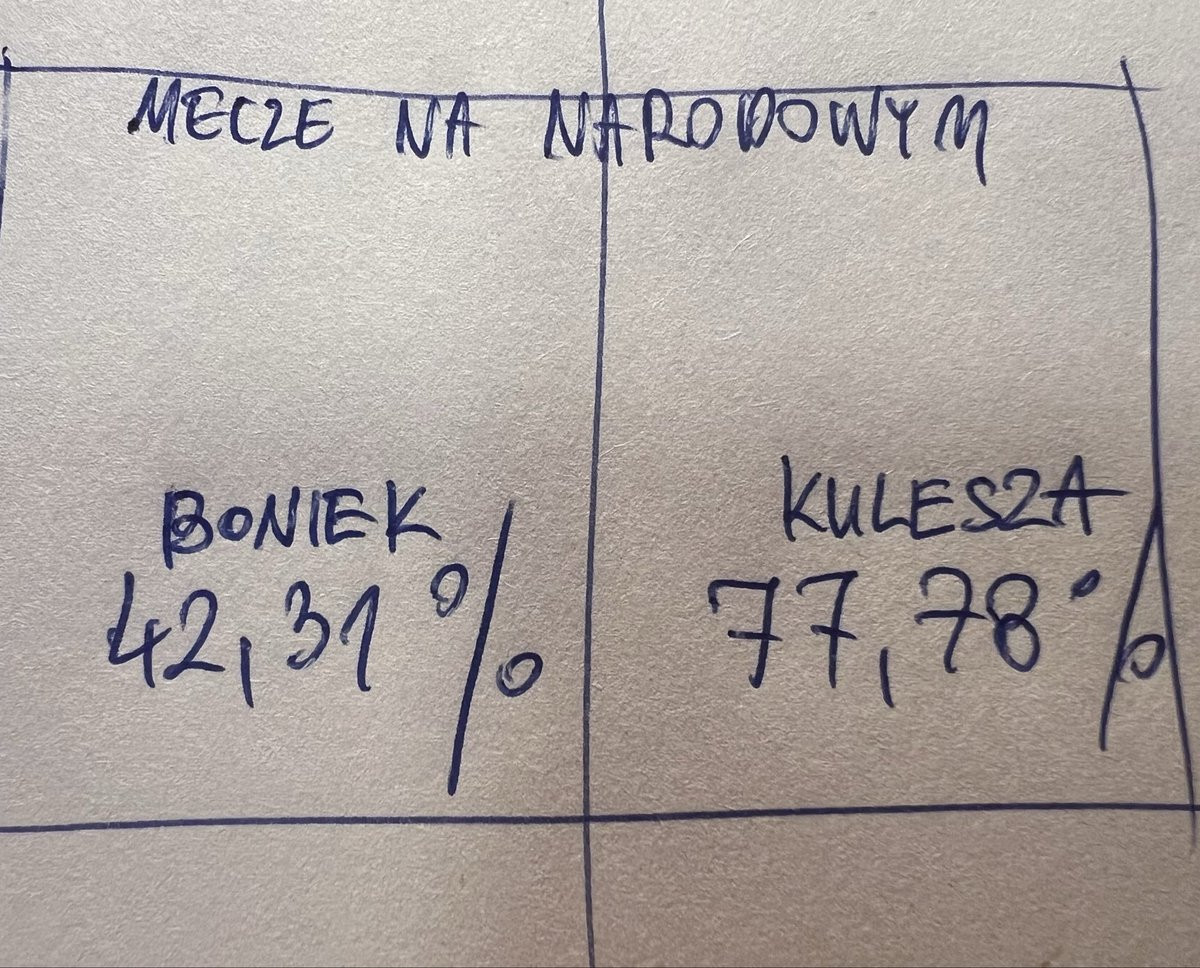 MECZE NA NARODOWYM
BONIEK
42,31%
KULESZA
77,78%